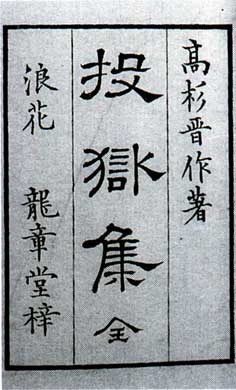 高杉晋作著
投獄集 全
浪花 龍章堂梓